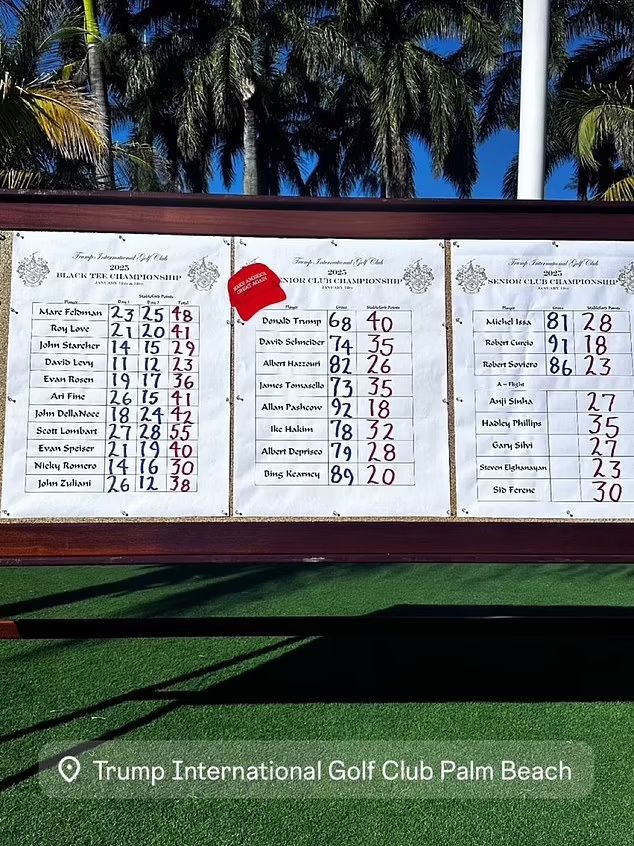 Trump International Golf Club
2025
BLACK TEE CHAMPIONSHIP
Stableford Points
Player Day 1 Day 2 Total
Marc Feldman 23 25 48
Roy Love 21 20 41
John Starcher 14 15 29
David Levy 11 12 23
Evan Rosen 19 17 36
Ari Fine 26 15 41
John DellaNoce 18 24 42
Scott Lombart 27 28 55
Evan Speiser 21 19 40
Nicky Romero 14 16 30
John Zuliani 26 12 38
MAKE AMERICA
GREAT AGAIN
Trump International Golf Club
2025
SENIOR CLUB CHAMPIONSHIP
Player Gross Stableford Points
Donald Trump 68 40
David Schneider 74 35
Albert Hazzouri 82 26
James Tomasello 73 35
Allan Pashcow 92 18
Ike Hakim 78 32
Albert Deprisco 79 28
Bing Kearney 89 20
Trump International Golf Club
2025
SENIOR CLUB CHAMPIONSHIP
Player Gross Stableford Points
Michel Issa 81 28
Robert Curcio 91 18
Robert Soviero 86 23
A – Flight
Anji Sinha 27
Hadley Phillips 35
Gary Silvi 27
Steven Elghanayan 23
Sid Ferenc 30
Trump International Golf Club Palm Beach